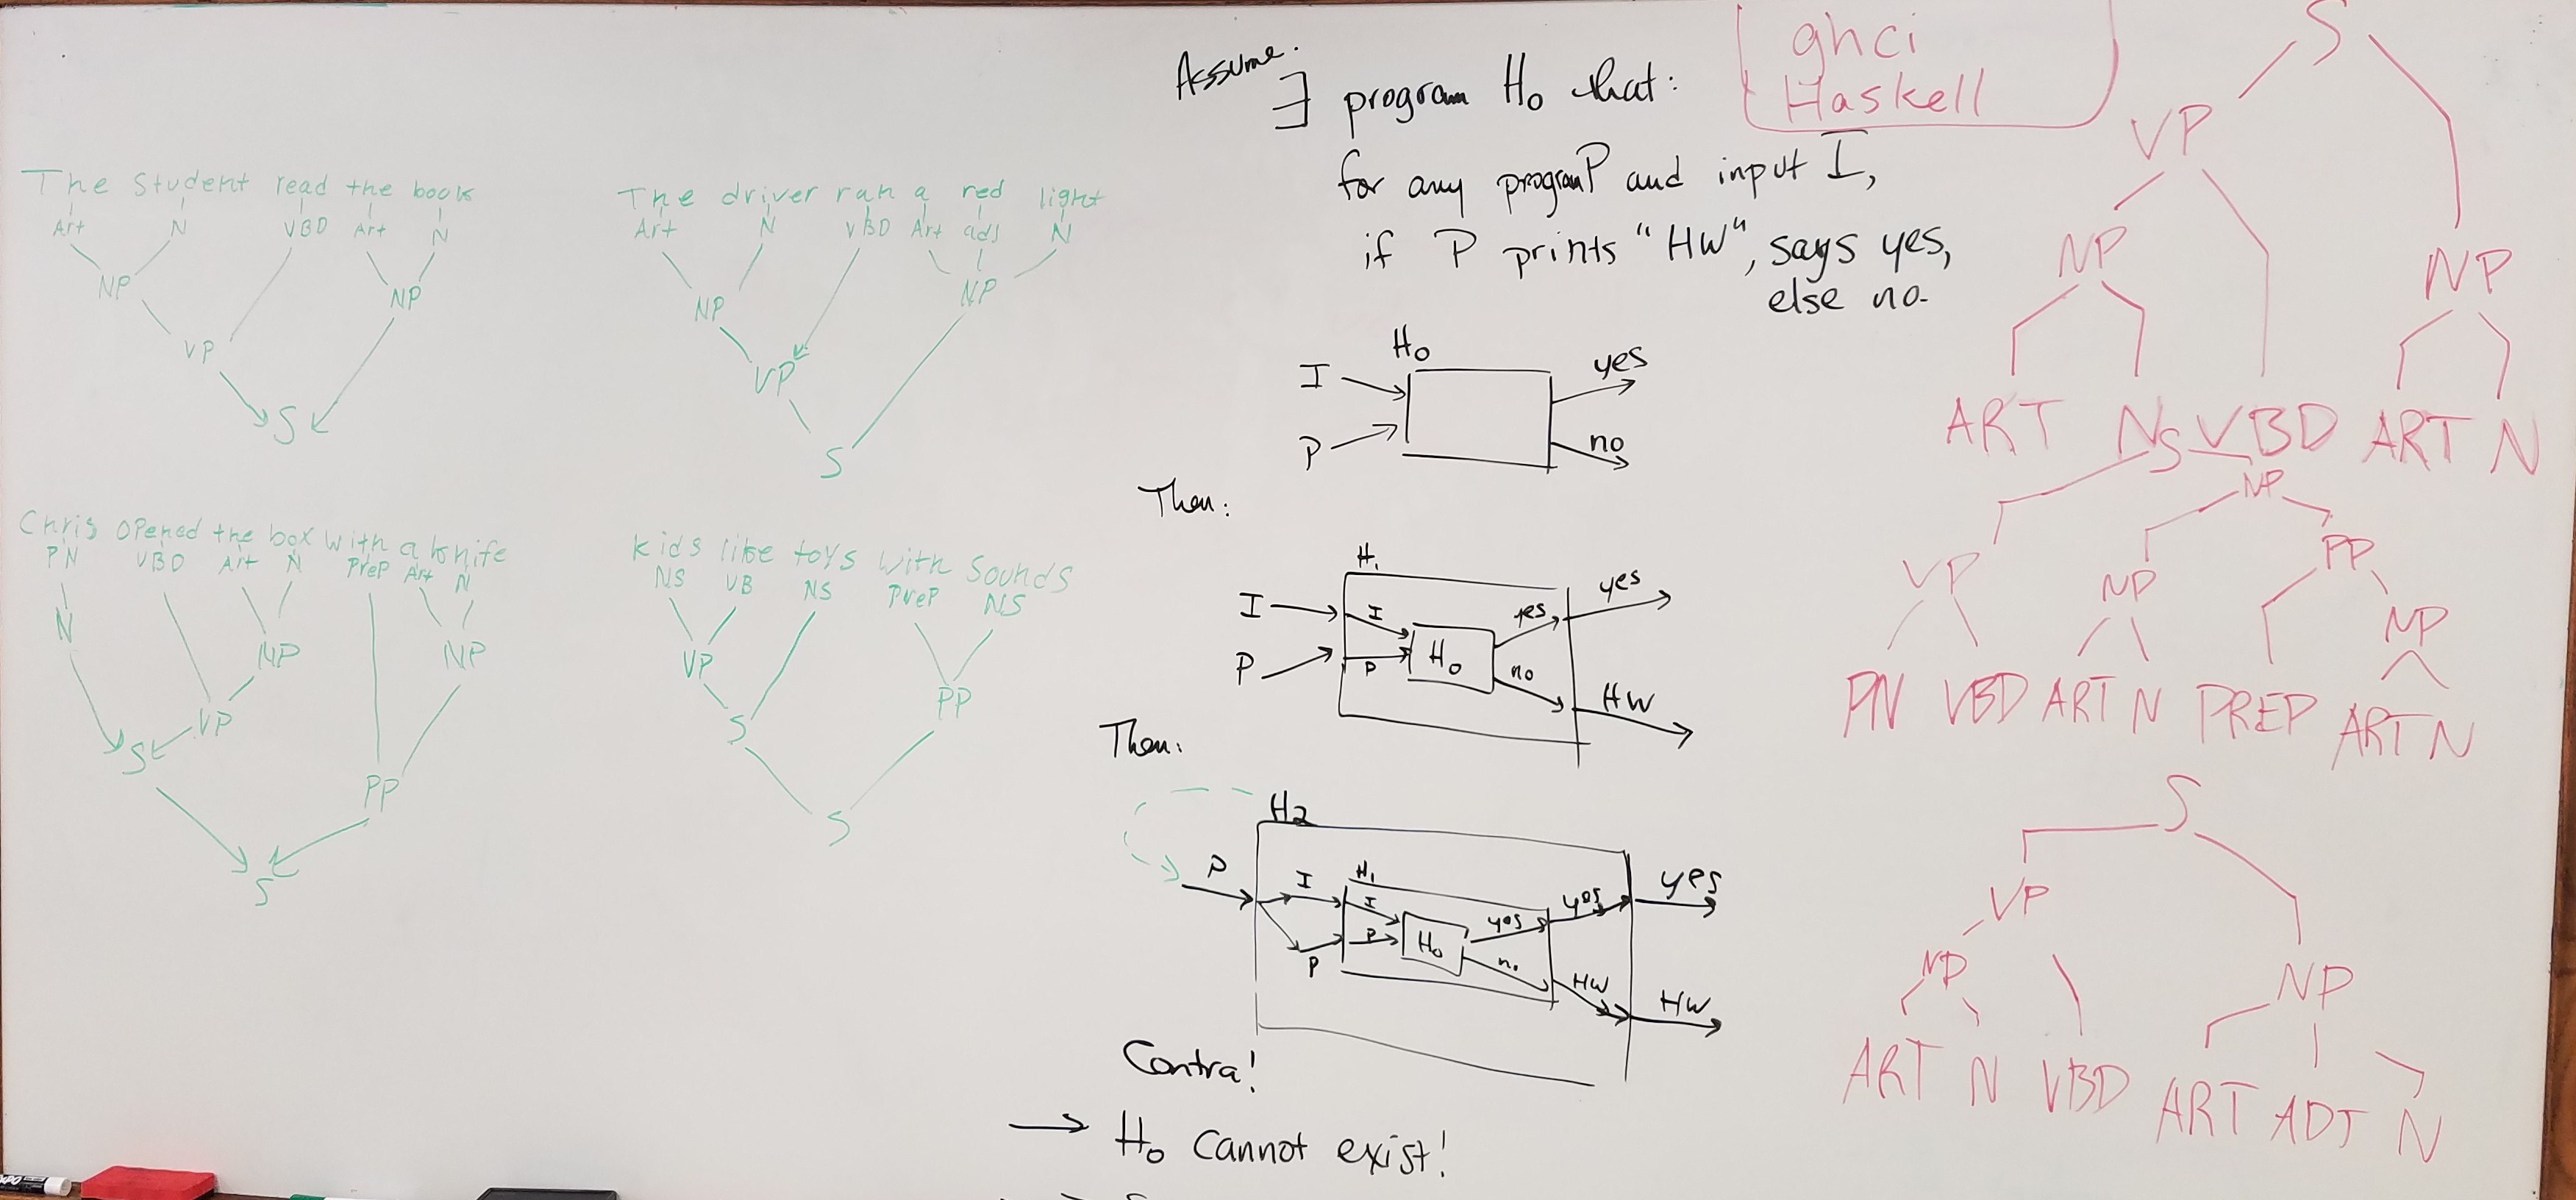 The Student read the book
Art N VBD Art N
NP NP
VP
S
The driver ran a red light
Art N VBD Art adj N
NP NP
VP
S
Chris opened the box with a knife
PN VBD Art N Prep Art N
N NP NP
VP
S
PP
S
kids like toys with Sounds
NS VB NS PreP NS
VP PP
S
S
Assume.
∃ program H0 that:
for any program P and input I,
if P prints "HW", says yes,
else no.
H0
I yes
P no
Then:
H1
I I yes yes
P P H0 no HW
Then:
H2
P I H1 I yes yes yes
P P H0 no HW HW
Contra!
→ H0 cannot exist!
ghci
Haskell
S
VP
NP NP
ART N VBD ART N
S
NP
VP NP PP
NP
PN VBD ART N PREP ART N
S
VP
NP NP
ART N VBD ART ADJ N